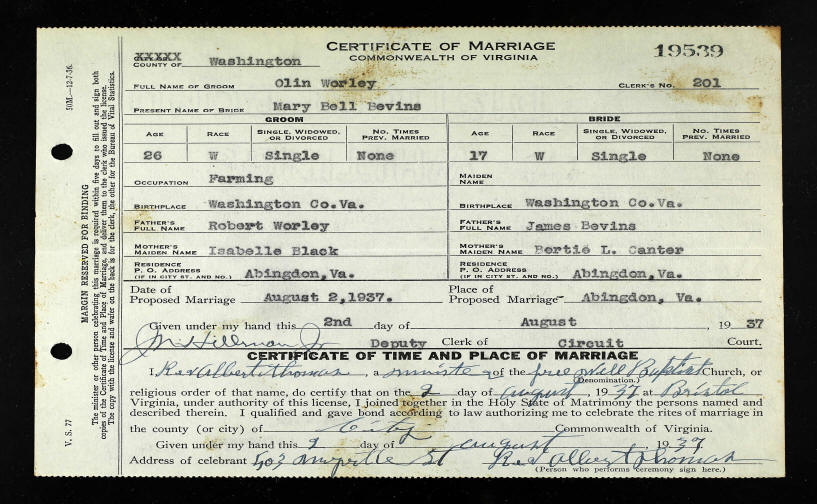 CERTIFICATE OF MARRIAGE
COMMONWEALTH OF VIRGINIA
19539
XXXXX
COUNTY OF Washington
FULL NAME OF GROOM Olin Worley CLERK'S NO. 201
PRESENT NAME OF BRIDE Mary Bell Bevins
GROOM BRIDE
AGE RACE SINGLE, WIDOWED, OR DIVORCED NO. TIMES PREV. MARRIED AGE RACE SINGLE, WIDOWED, OR DIVORCED NO. TIMES PREV. MARRIED
26 W Single None 17 W Single None
OCCUPATION Farming MAIDEN NAME
BIRTHPLACE Washington Co.Va. BIRTHPLACE Washington Co.Va.
FATHER'S FULL NAME Robert Worley FATHER'S FULL NAME James Bevins
MOTHER'S MAIDEN NAME Isabelle Black MOTHER'S MAIDEN NAME Bertie L. Canter
RESIDENCE P. O. ADDRESS (IF IN CITY ST. AND NO.) Abingdon,Va. RESIDENCE P. O. ADDRESS (IF IN CITY ST. AND NO.) Abingdon,Va.
Date of Proposed Marriage August 2,1937. Place of Proposed Marriage Abingdon, Va.
Given under my hand this 2nd day of August, 19 37
J M Hillman Jr Deputy Clerk of Circuit Court.
CERTIFICATE OF TIME AND PLACE OF MARRIAGE
I, Rev Albert Thomas, a minister of the free Will Baptist Church, or
(Denomination.)
religious order of that name, do certify that on the 2 day of August, 1937 at Bristol
Virginia, under authority of this license, I joined together in the Holy State of Matrimony the persons named and
described therein. I qualified and gave bond according to law authorizing me to celebrate the rites of marriage in
the county (or city) of City Commonwealth of Virginia.
Given under my hand this 2 day of August, 1937
Address of celebrant 503 Myrtle St Rev Albert Thomas
(Person who performs ceremony sign here.)
V. S. 77 50M.—12-7-36.
MARGIN RESERVED FOR BINDING
The minister or other person celebrating this marriage is required within five days to fill out and sign both
copies of the Certificate of Time and Place of Marriage, and deliver them to the clerk who issued the license.
The copy with the license and order on the back is for the clerk, the other for the Bureau of Vital Statistics.